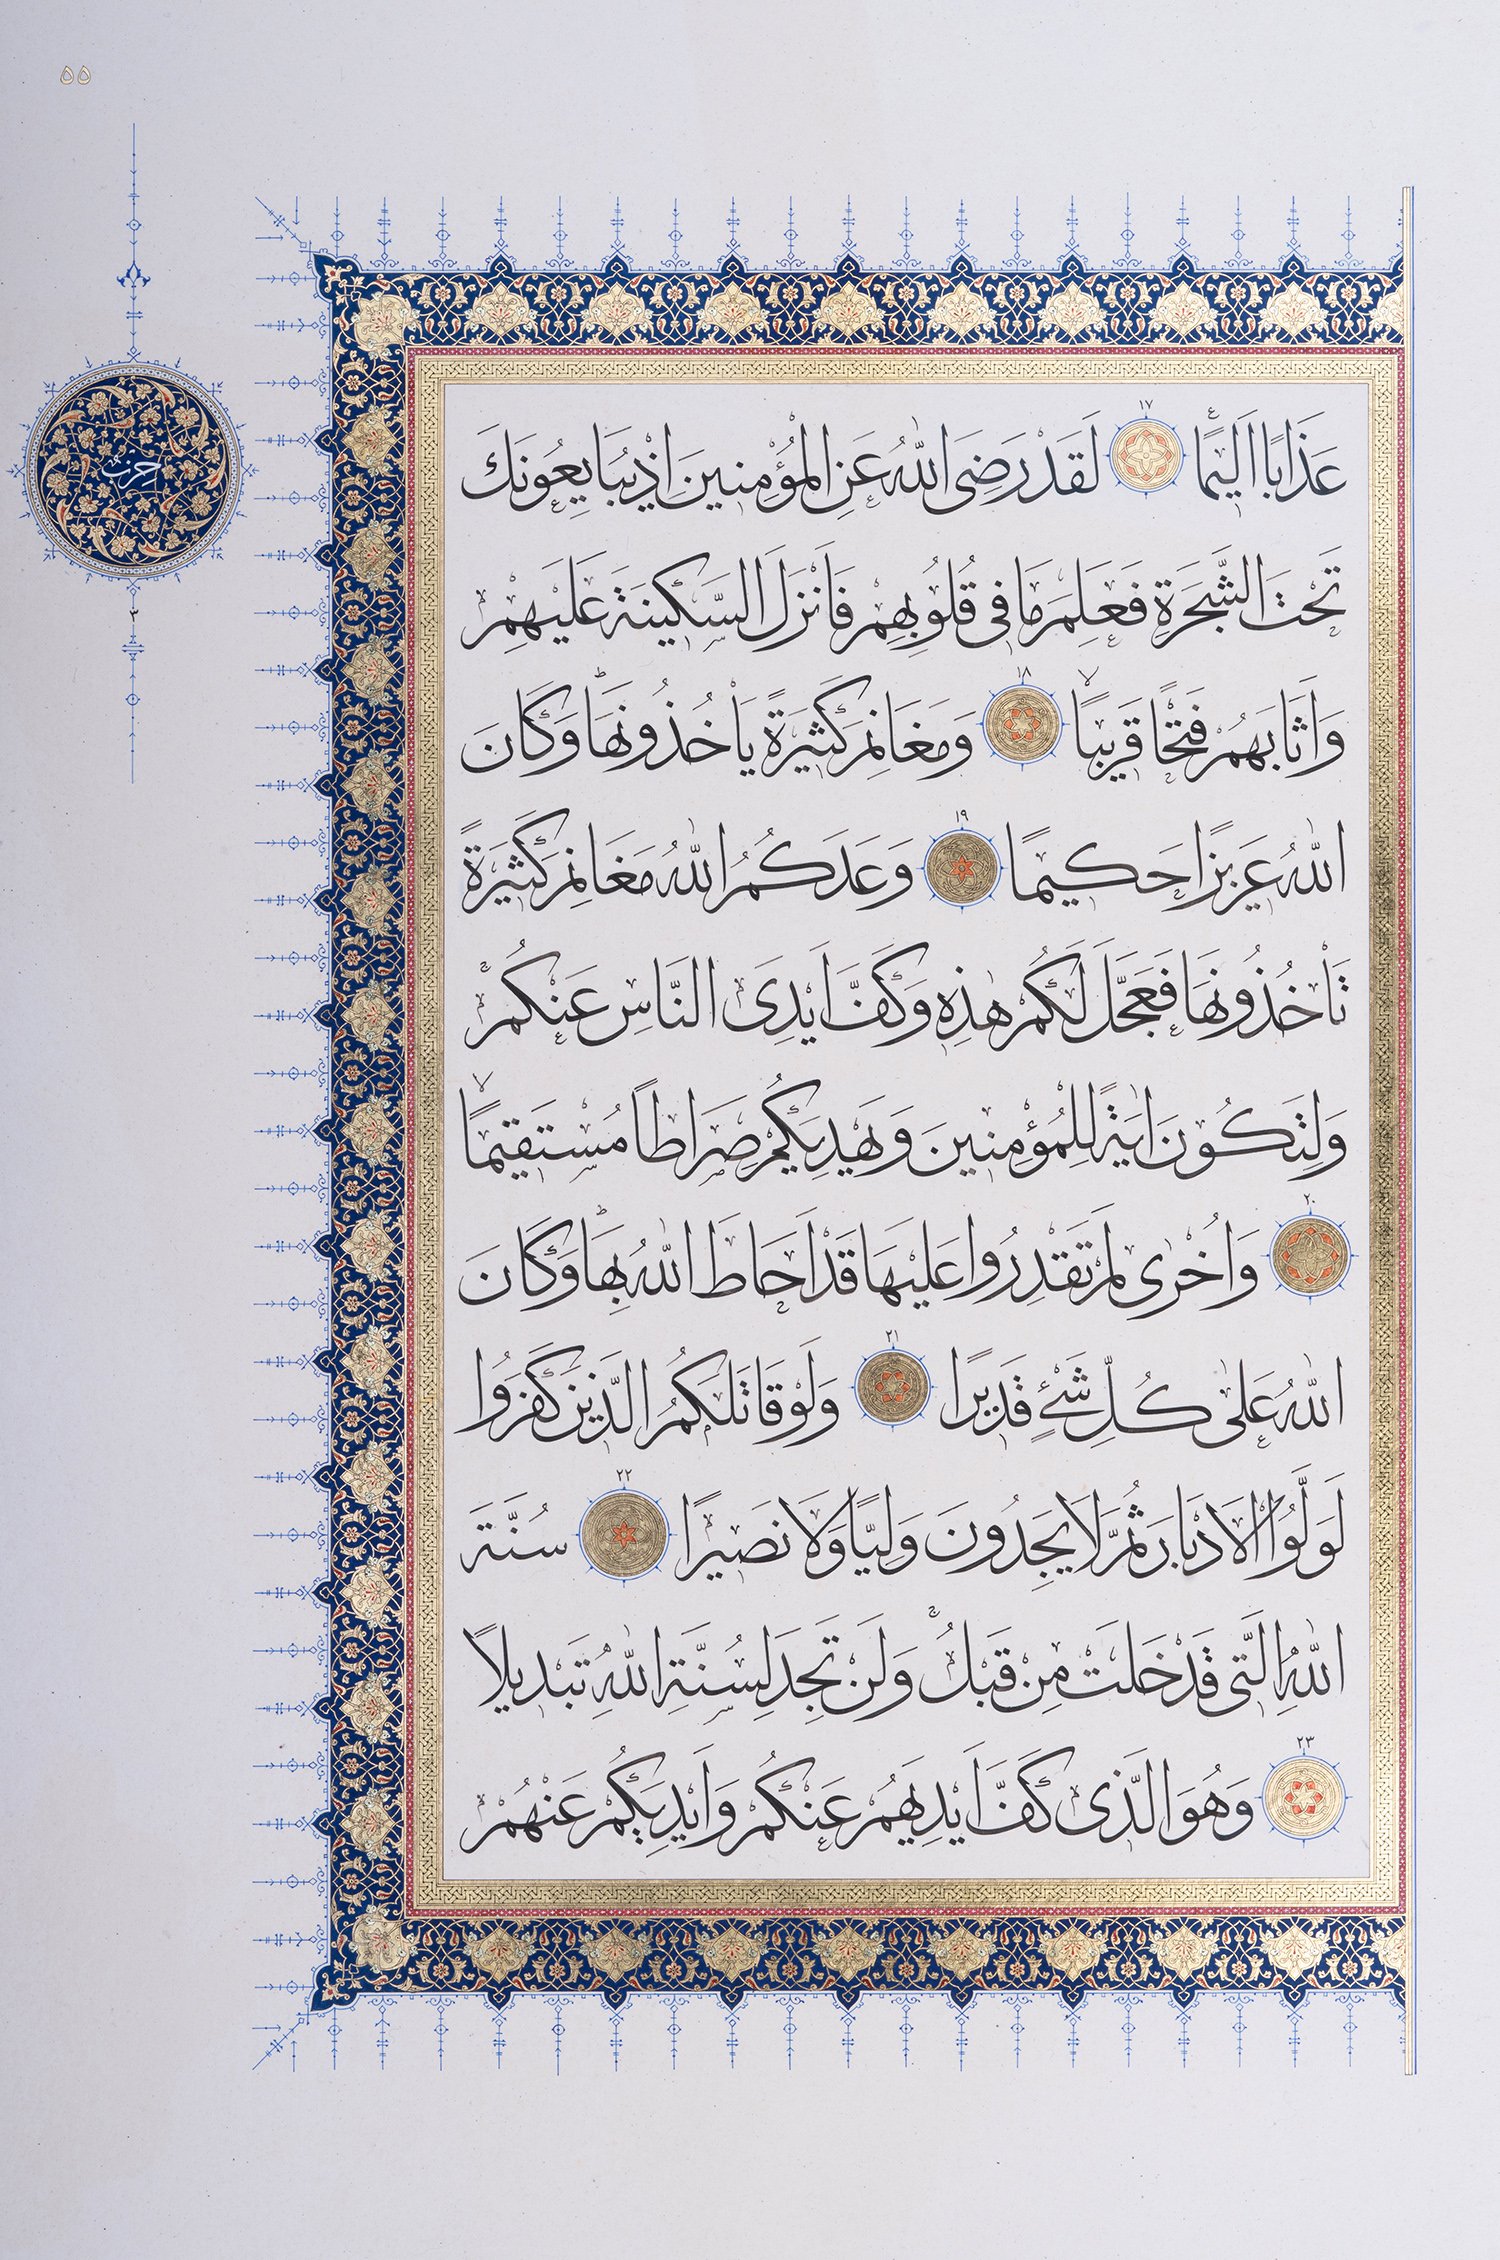 ٥٥
حزب
٢
عَذَابًا اَل۪يمًا ١٧ لَقَدْ رَضِيَ اللّٰهُ عَنِ الْمُؤْمِن۪ينَ اِذْ يُبَايِعُونَكَ
تَحْتَ الشَّجَرَةِ فَعَلِمَ مَا ف۪ي قُلُوبِهِمْ فَاَنْزَلَ السَّك۪ينَةَ عَلَيْهِمْ
وَاَثَابَهُمْ فَتْحًا قَر۪يبًاۙ ١٨ وَمَغَانِمَ كَث۪يرَةً يَأْخُذُونَهَاۜ وَكَانَ
اللّٰهُ عَز۪يزًا حَك۪يمًا ١٩ وَعَدَكُمُ اللّٰهُ مَغَانِمَ كَث۪يرَةً
تَأْخُذُونَهَا فَعَجَّلَ لَكُمْ هٰذِه۪ وَكَفَّ اَيْدِيَ النَّاسِ عَنْكُمْۚ
وَلِتَكُونَ اٰيَةً لِلْمُؤْمِن۪ينَ وَيَهْدِيَكُمْ صِرَاطًا مُسْتَق۪يمًاۙ
٢٠ وَاُخْرٰى لَمْ تَقْدِرُوا عَلَيْهَا قَدْ اَحَاطَ اللّٰهُ بِهَاۜ وَكَانَ
اللّٰهُ عَلٰى كُلِّ شَيْءٍ قَد۪يرًا ٢١ وَلَوْ قَاتَلَكُمُ الَّذ۪ينَ كَفَرُوا
لَوَلَّوُا الْاَدْبَارَ ثُمَّ لَا يَجِدُونَ وَلِيًّا وَلَا نَص۪يرًا ٢٢ سُنَّةَ
اللّٰهِ الَّت۪ي قَدْ خَلَتْ مِنْ قَبْلُۚ وَلَنْ تَجِدَ لِسُنَّةِ اللّٰهِ تَبْد۪يلًا
٢٣ وَهُوَ الَّذ۪ي كَفَّ اَيْدِيَهُمْ عَنْكُمْ وَاَيْدِيَكُمْ عَنْهُمْ